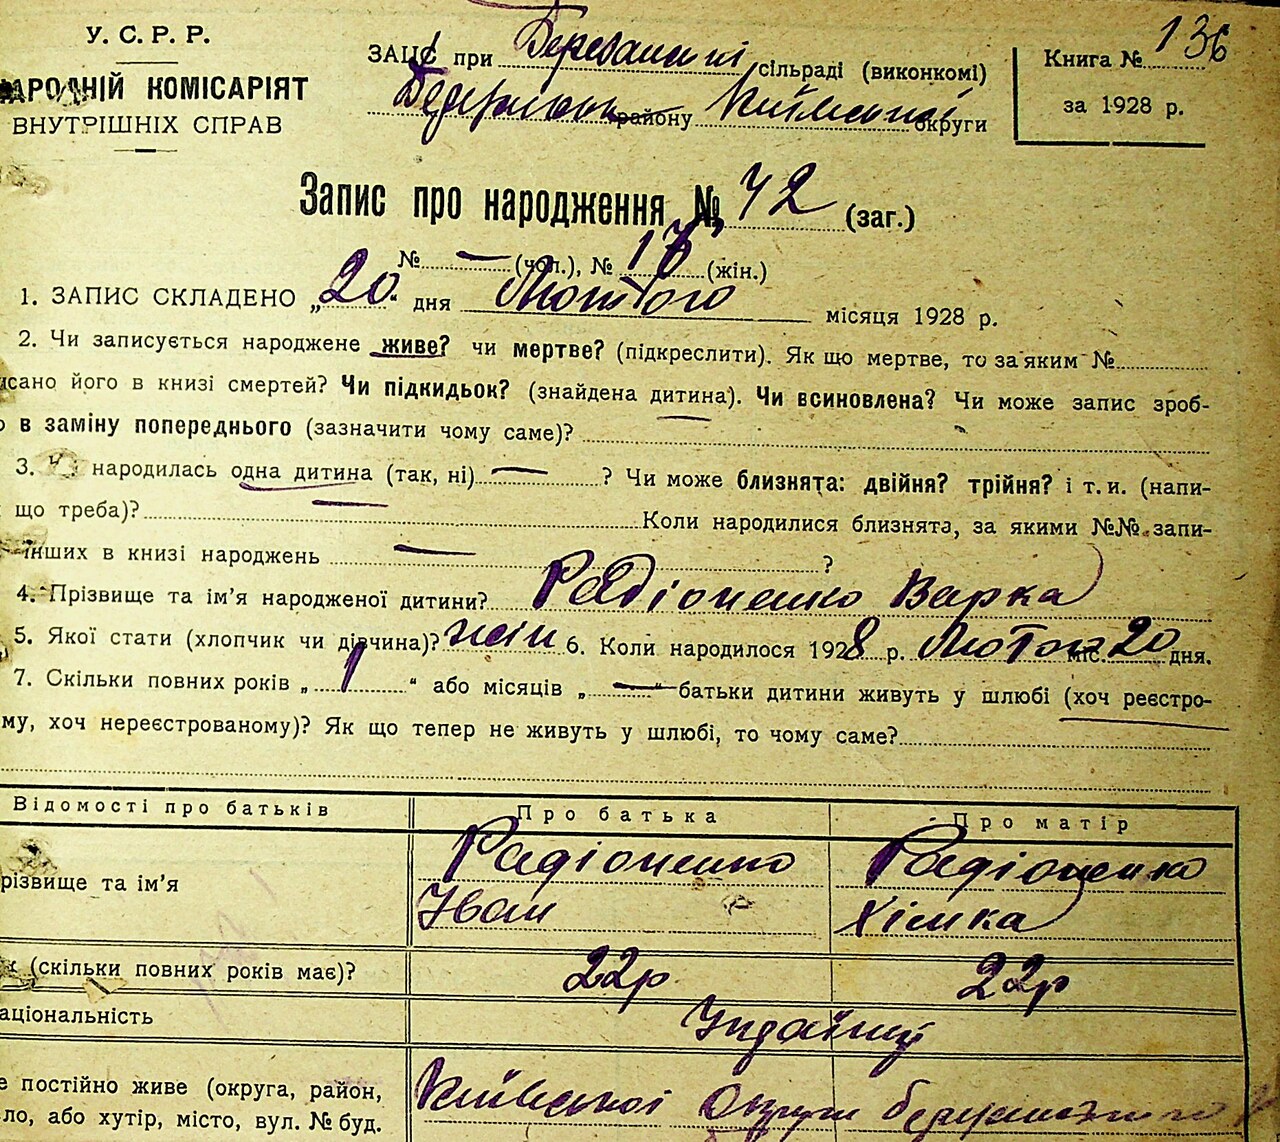 У. С. Р. Р.
НАРОДНІЙ КОМІСАРІЯТ
ВНУТРІШНІХ СПРАВ
ЗАЦС при сільраді (виконкомі)
району Київської округи
Книга № 136
за 1928 р.
Запис про народження № 42 (заг.)
№ — (чол.), № (жін.)
1. ЗАПИС СКЛАДЕНО „20“ дня Лютого місяця 1928 р.
2. Чи записується народжене живе? чи мертве? (підкреслити). Як що мертве, то за яким №
исано його в книзі смертей? Чи підкидьок? (знайдена дитина). Чи всиновлена? Чи може запис зроб-
о в заміну попереднього (зазначити чому саме)?
3. народилась одна дитина (так, ні) — ? Чи може близнята: двійня? трійня? і т. и. (напи-
що треба)? Коли народилися близнята, за якими №№ запи-
інших в книзі народжень — ?
4. Прізвище та ім’я народженої дитини? Радіоненко Варка
5. Якої стати (хлопчик чи дівчина)? жін 6. Коли народилося 1928 р. Лютого міс. 20 дня.
7. Скільки повних років „1“ або місяців „—“ батьки дитини живуть у шлюбі (хоч реєстро-
му, хоч нереєстрованому)? Як що тепер не живуть у шлюбі, то чому саме?
Відомості про батьків Про батька Про матір
різвище та ім’я Радіоненко Радіоненко
Іван Хімка
к (скільки повних років має)? 22р 22р
аціональність Українці
е постійно живе (округа, район, Київської Округи
ло, або хутір, місто, вул. № буд.